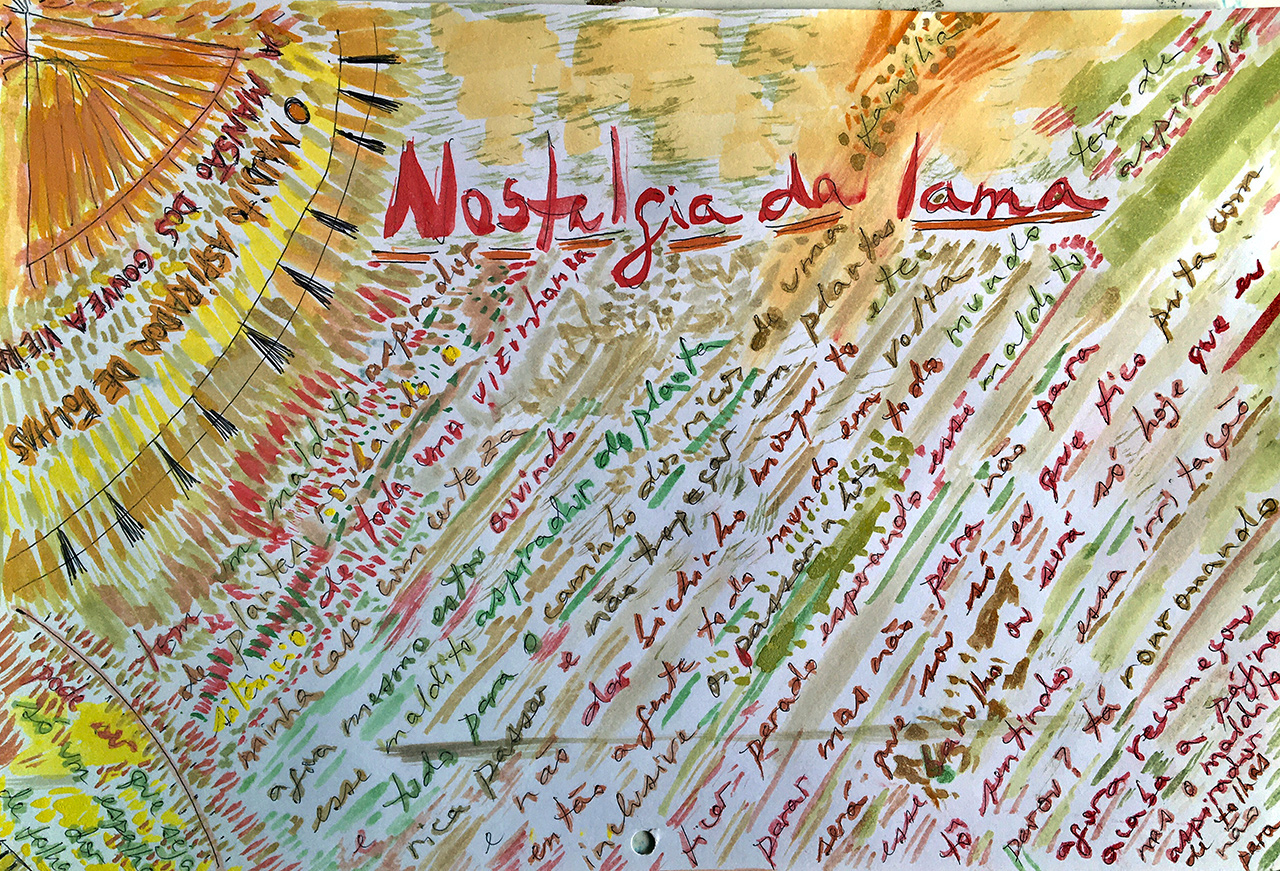 Nostalgia da lama
O MALDITO ASPIRADOR DE FOLHAS
MANSÃO DOS
tem um maldito aspirador
de plantas
silêncio de toda uma vizinhança
minha casa com certeza
agua mesmo estou ouvindo
esse maldito aspirador de planta
e todo para o caminho dos micos de uma familha
rica passar e não tropeçar em plantas
e não dar bichinho mosquito etc
então a gente todo mundo em volta
inclusive os passarinhos todo mundo tem de
ficar parado esperando esse maldito aspirador
parar mas não para não para
será que só eu que fico puta com
esse barulho ou será só hoje que eu
tô sentindo essa irritação
parou? tá normal
agora recomeçou
acaba a página
mas o maldito
aspirador
de folhas
não para
pode ser
só um
que seja
espelha
dor
de folha